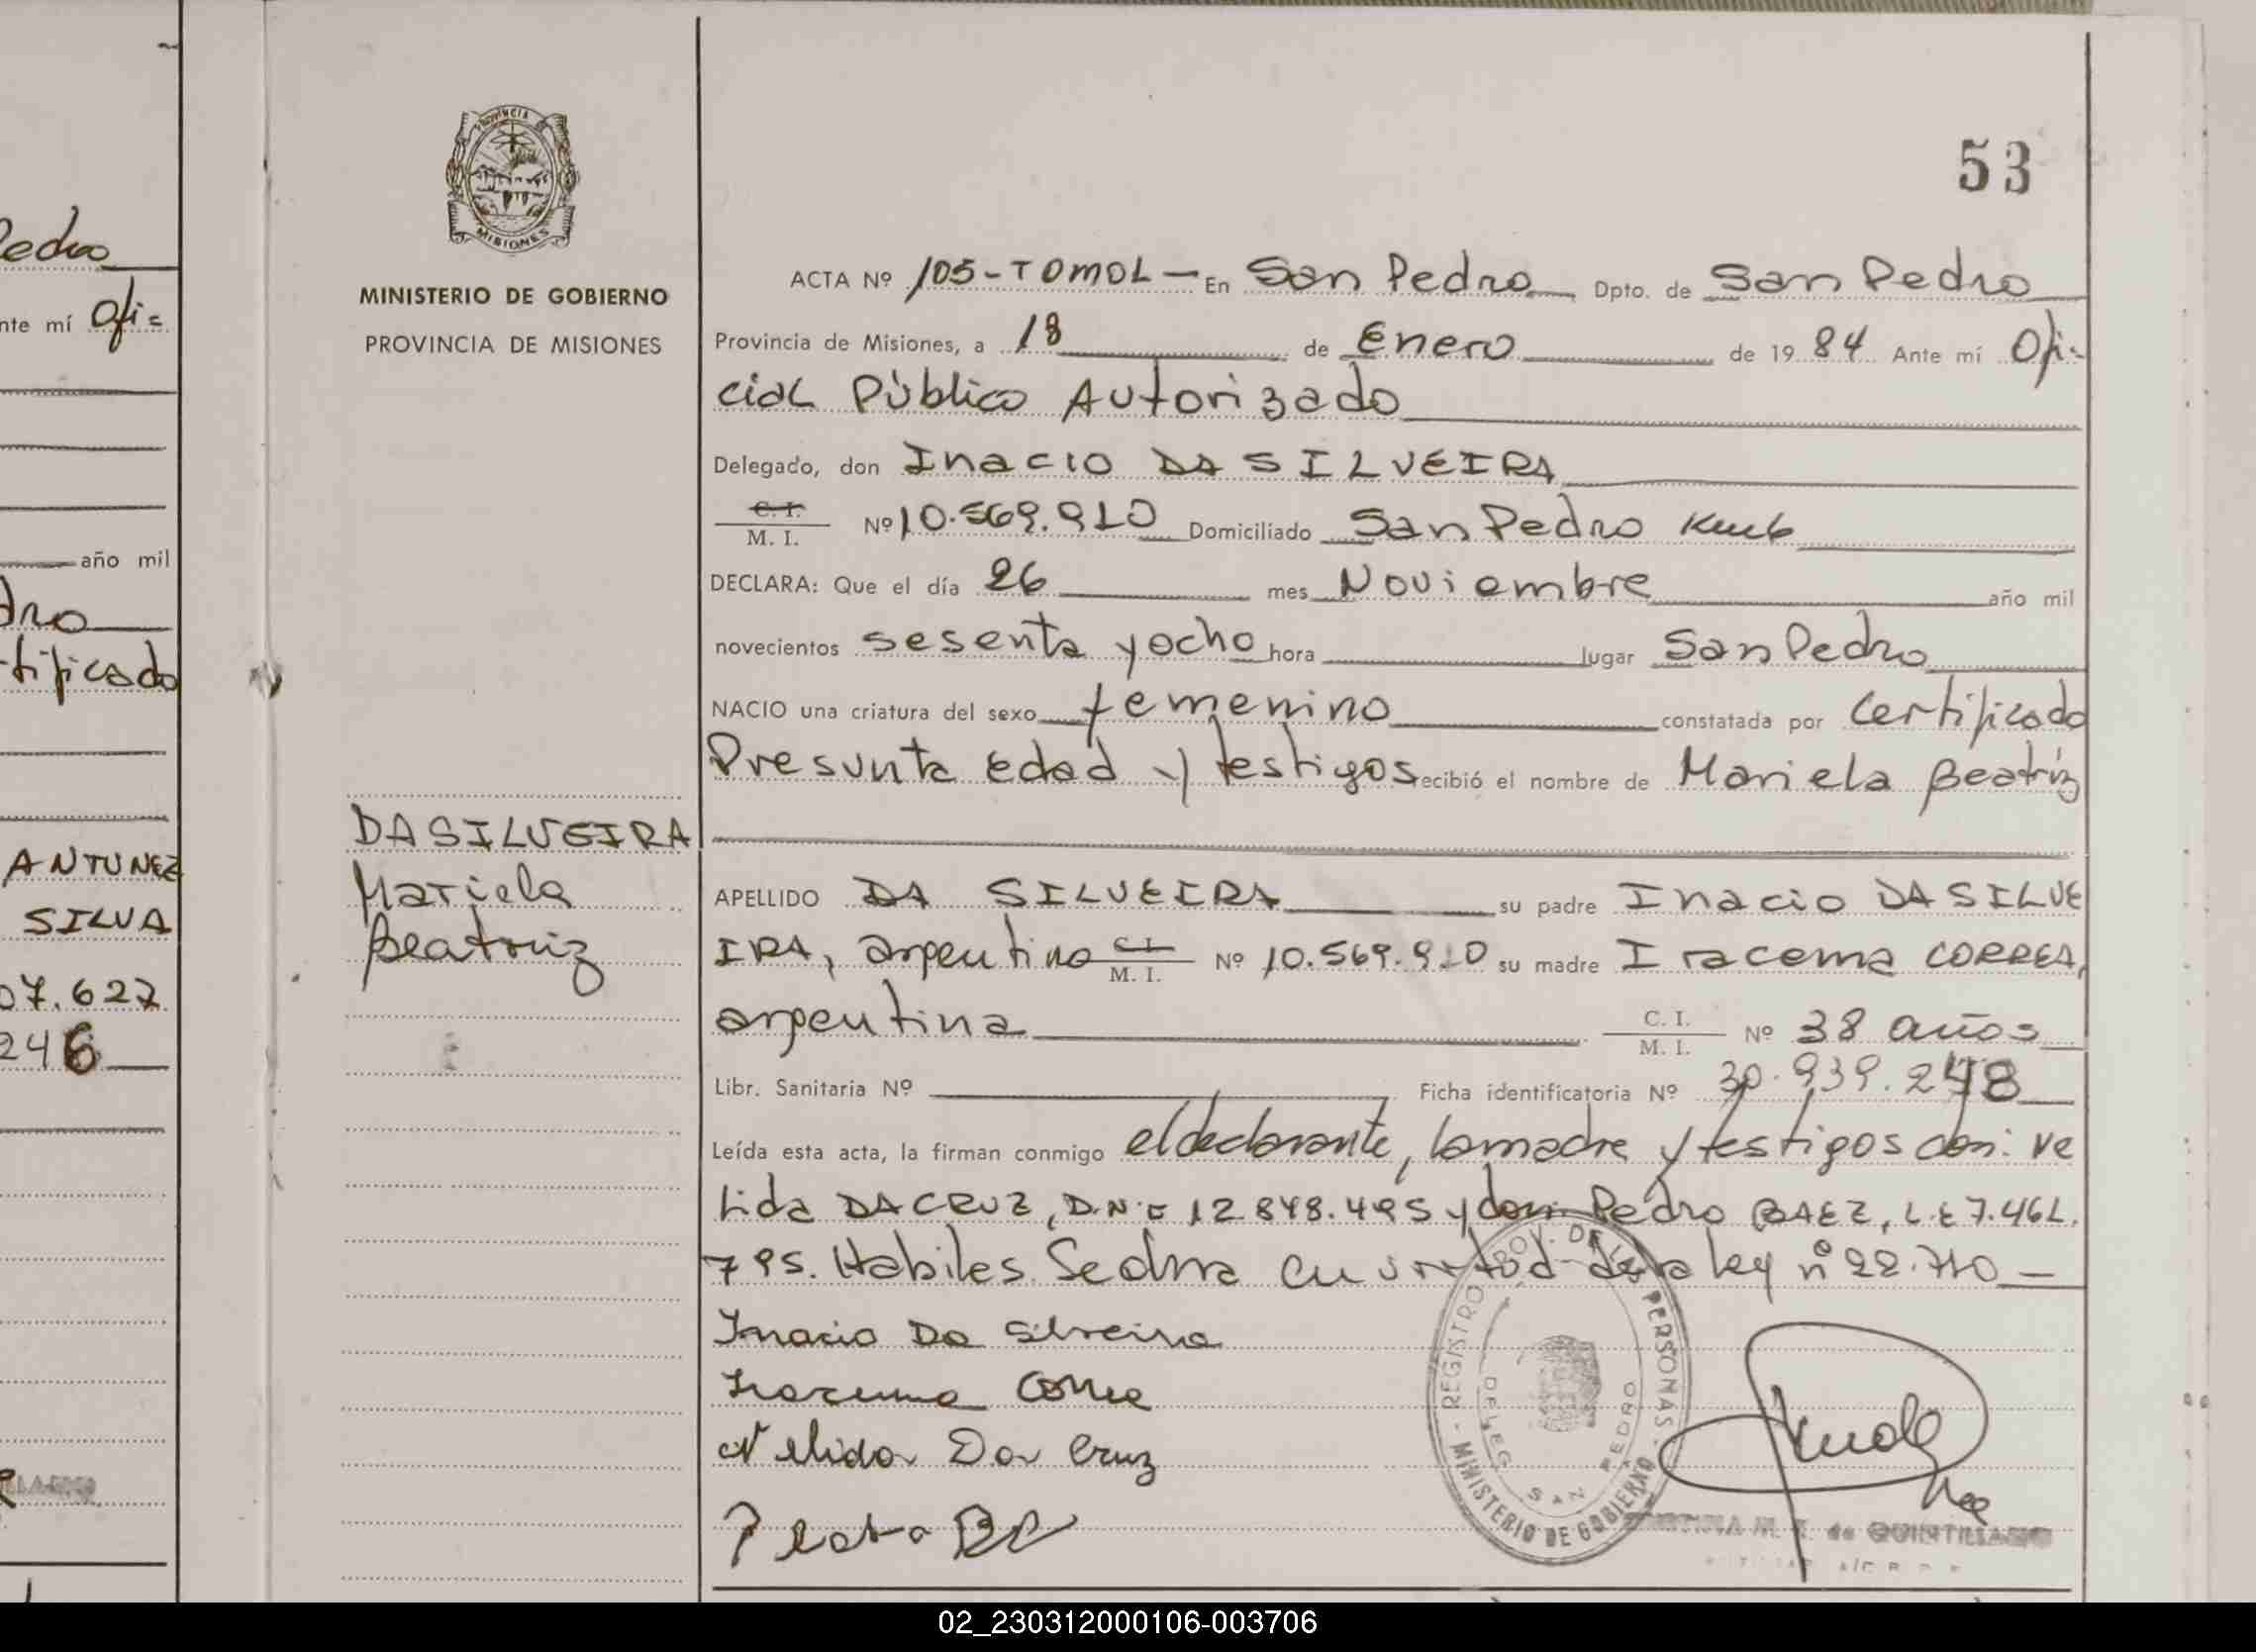 53
PROVINCIA
MISIONES
MINISTERIO DE GOBIERNO
PROVINCIA DE MISIONES
edro
nte mí Ofi=
año mil
dro
tificado
ANTUNEZ
SILVA
07.627
246
DA SILVEIRA
Mariela
Beatriz
ACTA Nº 105-TOMOL- En San Pedro Dpto. de San Pedro
Provincia de Misiones, a 18 de Enero de 1984 Ante mí Ofi-
cial Público Autorizado
Delegado, don Inacio DA SILVEIRA
C. I. M. I. Nº 10.569.910 Domiciliado San Pedro
DECLARA: Que el día 26 mes Noviembre año mil
novecientos sesenta y ocho hora lugar San Pedro
NACIO una criatura del sexo femenino constatada por Certificado
Presunta edad y testigos ecibió el nombre de Mariela Beatriz
APELLIDO DA SILVEIRA su padre Inacio DA SILVE
IRA, argentino C. I. M. I. Nº 10.569.910 su madre Iracema CORREA,
argentina C. I. M. I. Nº 38 años
Libr. Sanitaria Nº Ficha identificatoria Nº 30.939.248
Leída esta acta, la firman conmigo el declarante, la madre y testigos doñ: Ve
lida DA CRUZ, D.N.I 12.848.495 y don Pedro BAEZ, L.E 7.46L.
795. Habiles. Se dma en virtud de la ley nº 22.710 -
Inacio Da Silveira
Iracema Correa
Nelida Da Cruz
REGISTRO PROV. DE LAS PERSONAS - MINISTERIO DE GOBIERNO -
DELEG. SAN PEDRO
de QUINTILLANO
02_230312000106-003706